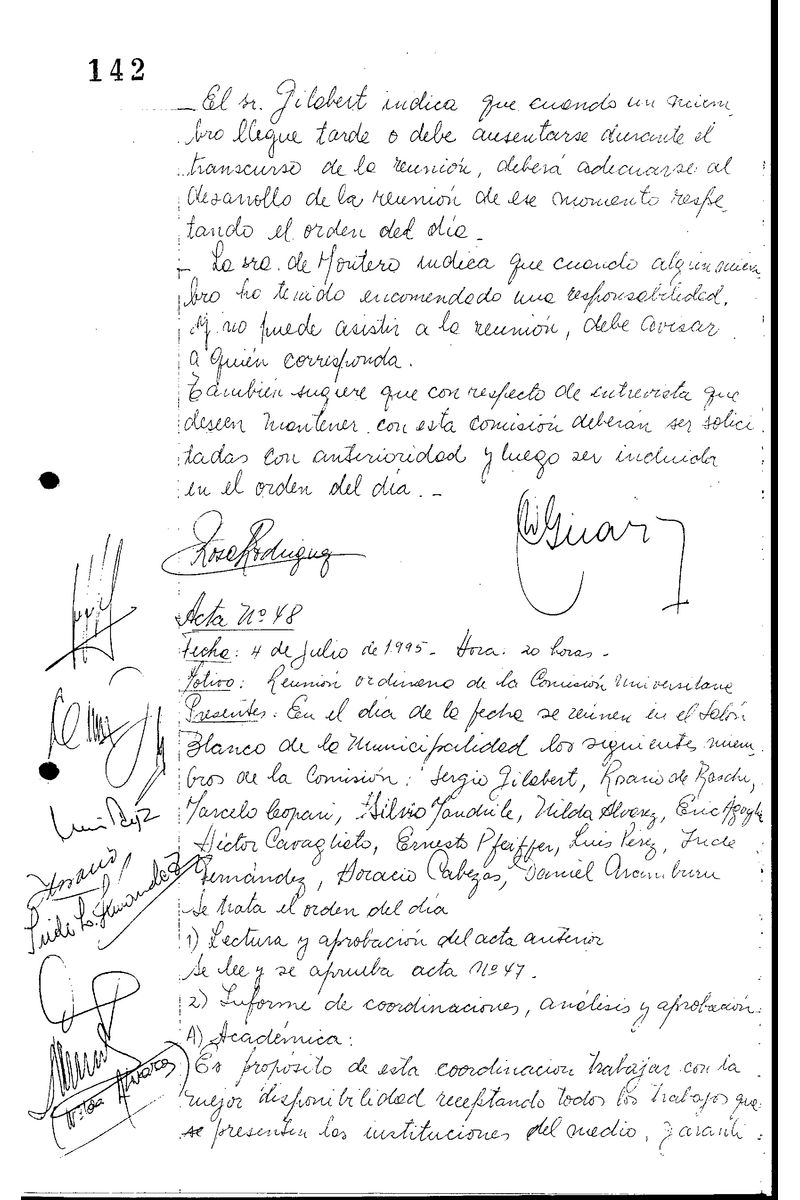 142
_ El sr. Gilabert indica que cuando un miem_
bro llegue tarde o debe ausentarse durante el
transcurso de la reunión, deberá adecuarse al
desarrollo de la reunión de ese momento respe_
tando el orden del día._
_ La sra. de Montero indica que cuando algún miem_
bro ha tenido encomendado una responsabilidad,
y no puede asistir a la reunión, debe avisar
a quién corresponda.
También sugiere que con respecto de entrevista que
deseen mantener con esta comisión deberán ser solici
tadas con anterioridad y luego ser incluida
en el orden del día._
Rosa Rodriguez
Acta Nº 48
Fecha: 4 de Julio de 1995- Hora: 20 horas-
Motivo: Reunión ordinaria de la Comisión Universitaria
Presentes: En el día de la fecha se reúnen en el Salón
Blanco de la Municipalidad los siguientes miem_
bros de la Comisión: Sergio Gilabert, Rosario de Raschi,
Marcelo Copari, Silvio Mandrile, Nilda Alvarez, Eric
Héctor Cavaglieto, Ernesto Pfeiffer, Luis Perez, Fride
Fernández, Horacio Cabezas, Daniel Aramburu
Se trata el orden del día
1) Lectura y aprobación del acta anterior
Se lee y se aprueba acta Nº 47.
2) Informe de coordinaciones, análisis y aprobación:
A) Académica:
Es propósito de esta coordinación trabajar con la
mejor disponibilidad receptando todos los trabajos que
se presenten las instituciones del medio, garanti
Luis Perez
Rosario
Fride L. Fernandez
Nilda Alvarez